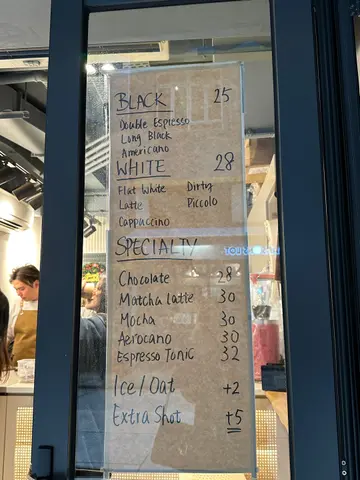 BLACK 25
Double Espresso
Long Black
Americano
WHITE 28
Flat White Dirty
Latte Piccolo
Cappaccino
SPECIALTY
Chocolate 28
Matcha Latte 30
Mocha 30
Aerocano 30
Espresso Tonic 32
Ice/Oat +2
Extra Shot +5